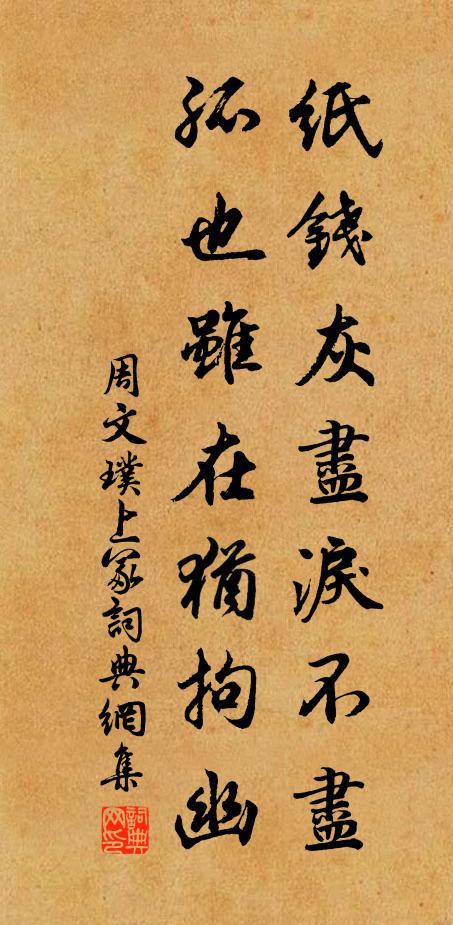 紙錢灰盡淚不盡
孤也雖在猶拘幽
周文璞上冢詞典網集
詞典网印